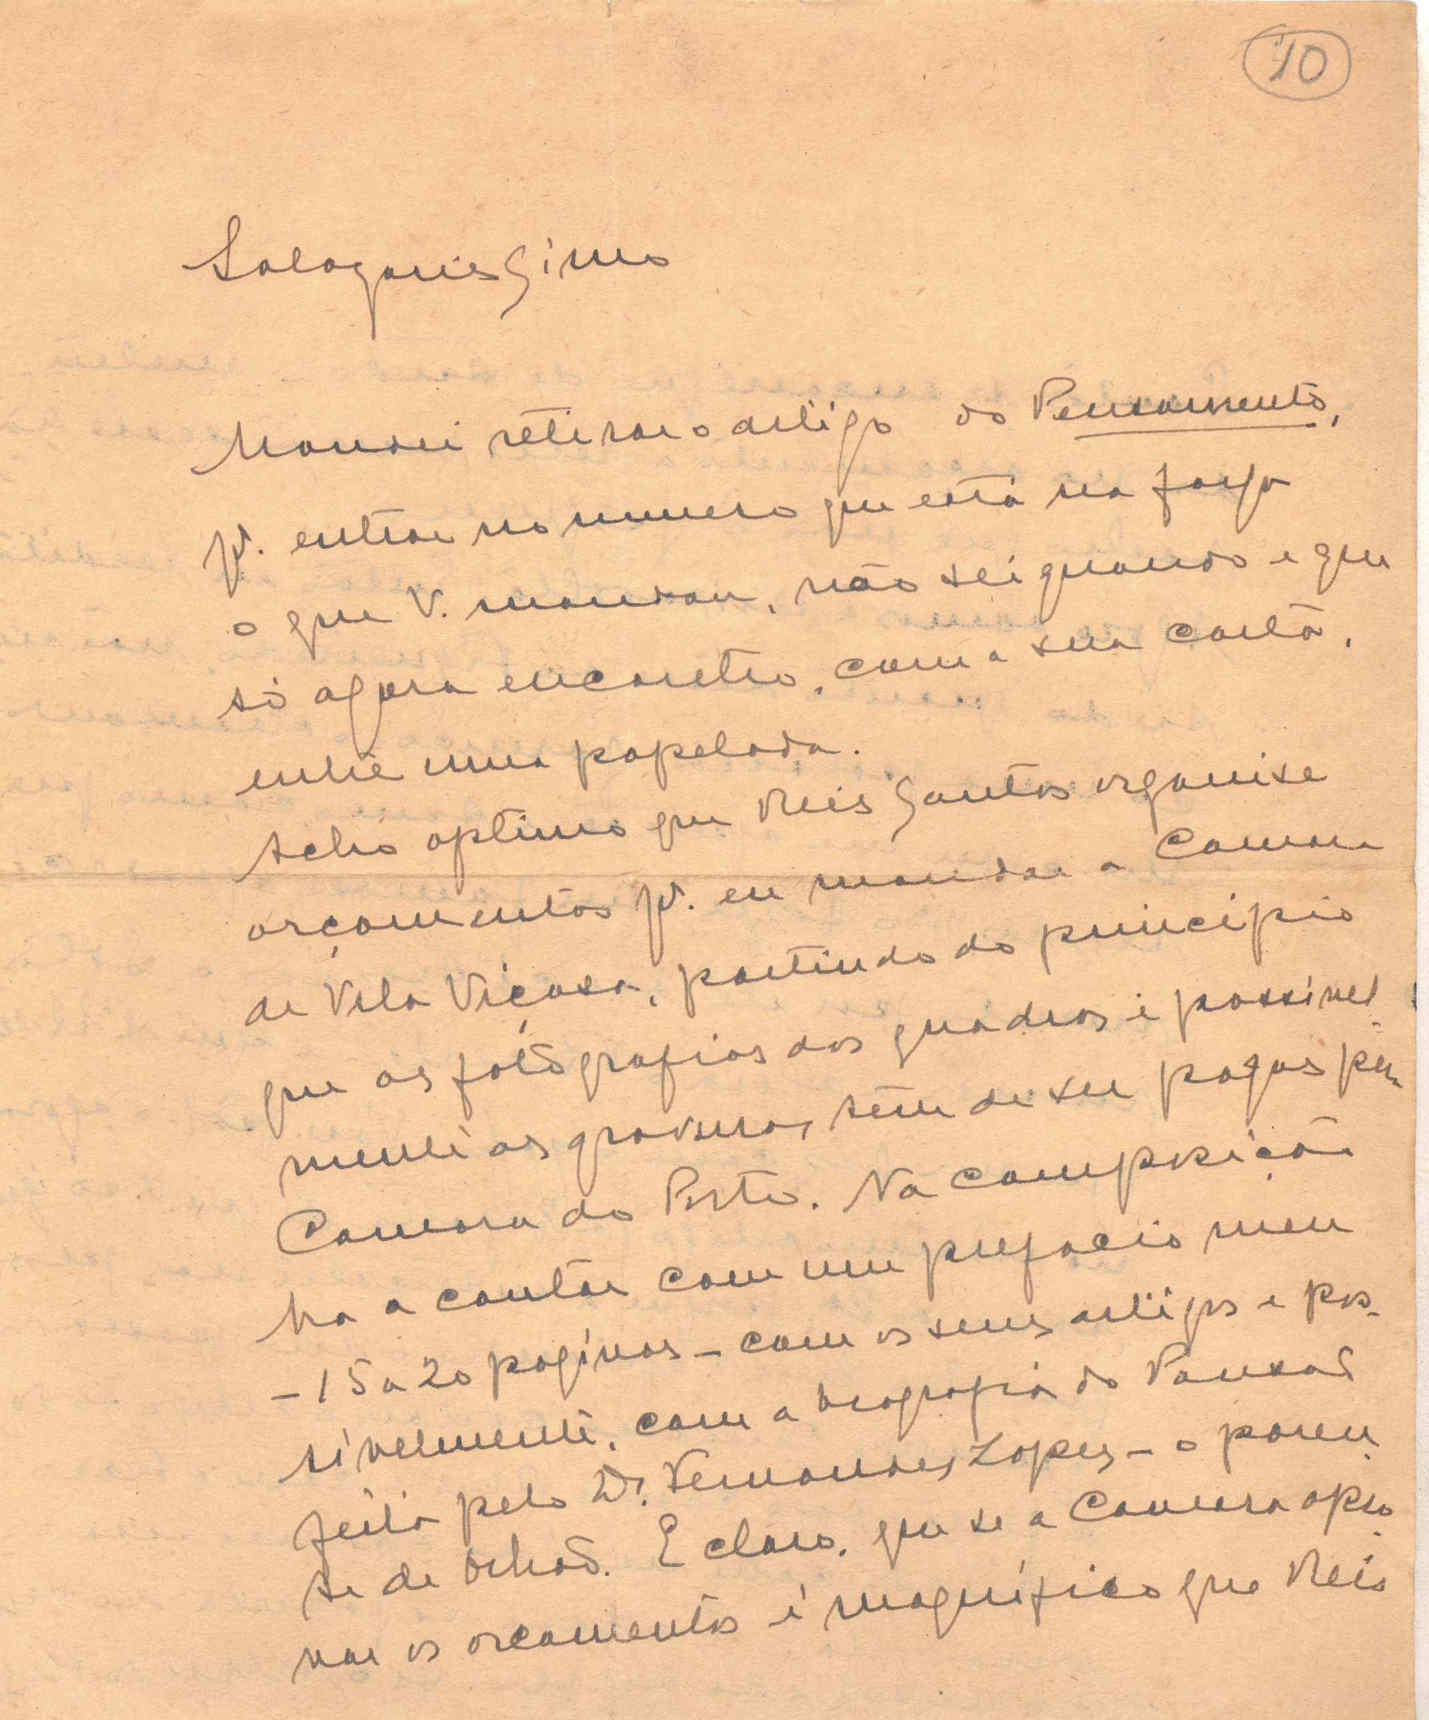 10
Salazarissimo
Mandei retirar o artigo do Pensamento,
pª. entrar no numero que está na forja
o que V. mandou, não sei quando e que
só agora encontro, com a sua carta,
entre uma papelada.
Acho optimo que Reis Santos organise
orçamentos pª. eu mandar a Camara
de Vila Viçosa, partindo do principio
que as fotografias dos quadros e possivel-
mente as gravuras, têm de ser pagas pela
Camara do Porto. Na composição
ha a contar com um prefacio meu
- 15 a 20 paginas - com os seus artigos e pos-
sivelmente, com a biografia do Pousão
feita pelo Dr. Fernandes Lopes - o poeta
de Olhão. E claro, que se a Camara apro-
var os orcamentos é magnífico que Reis